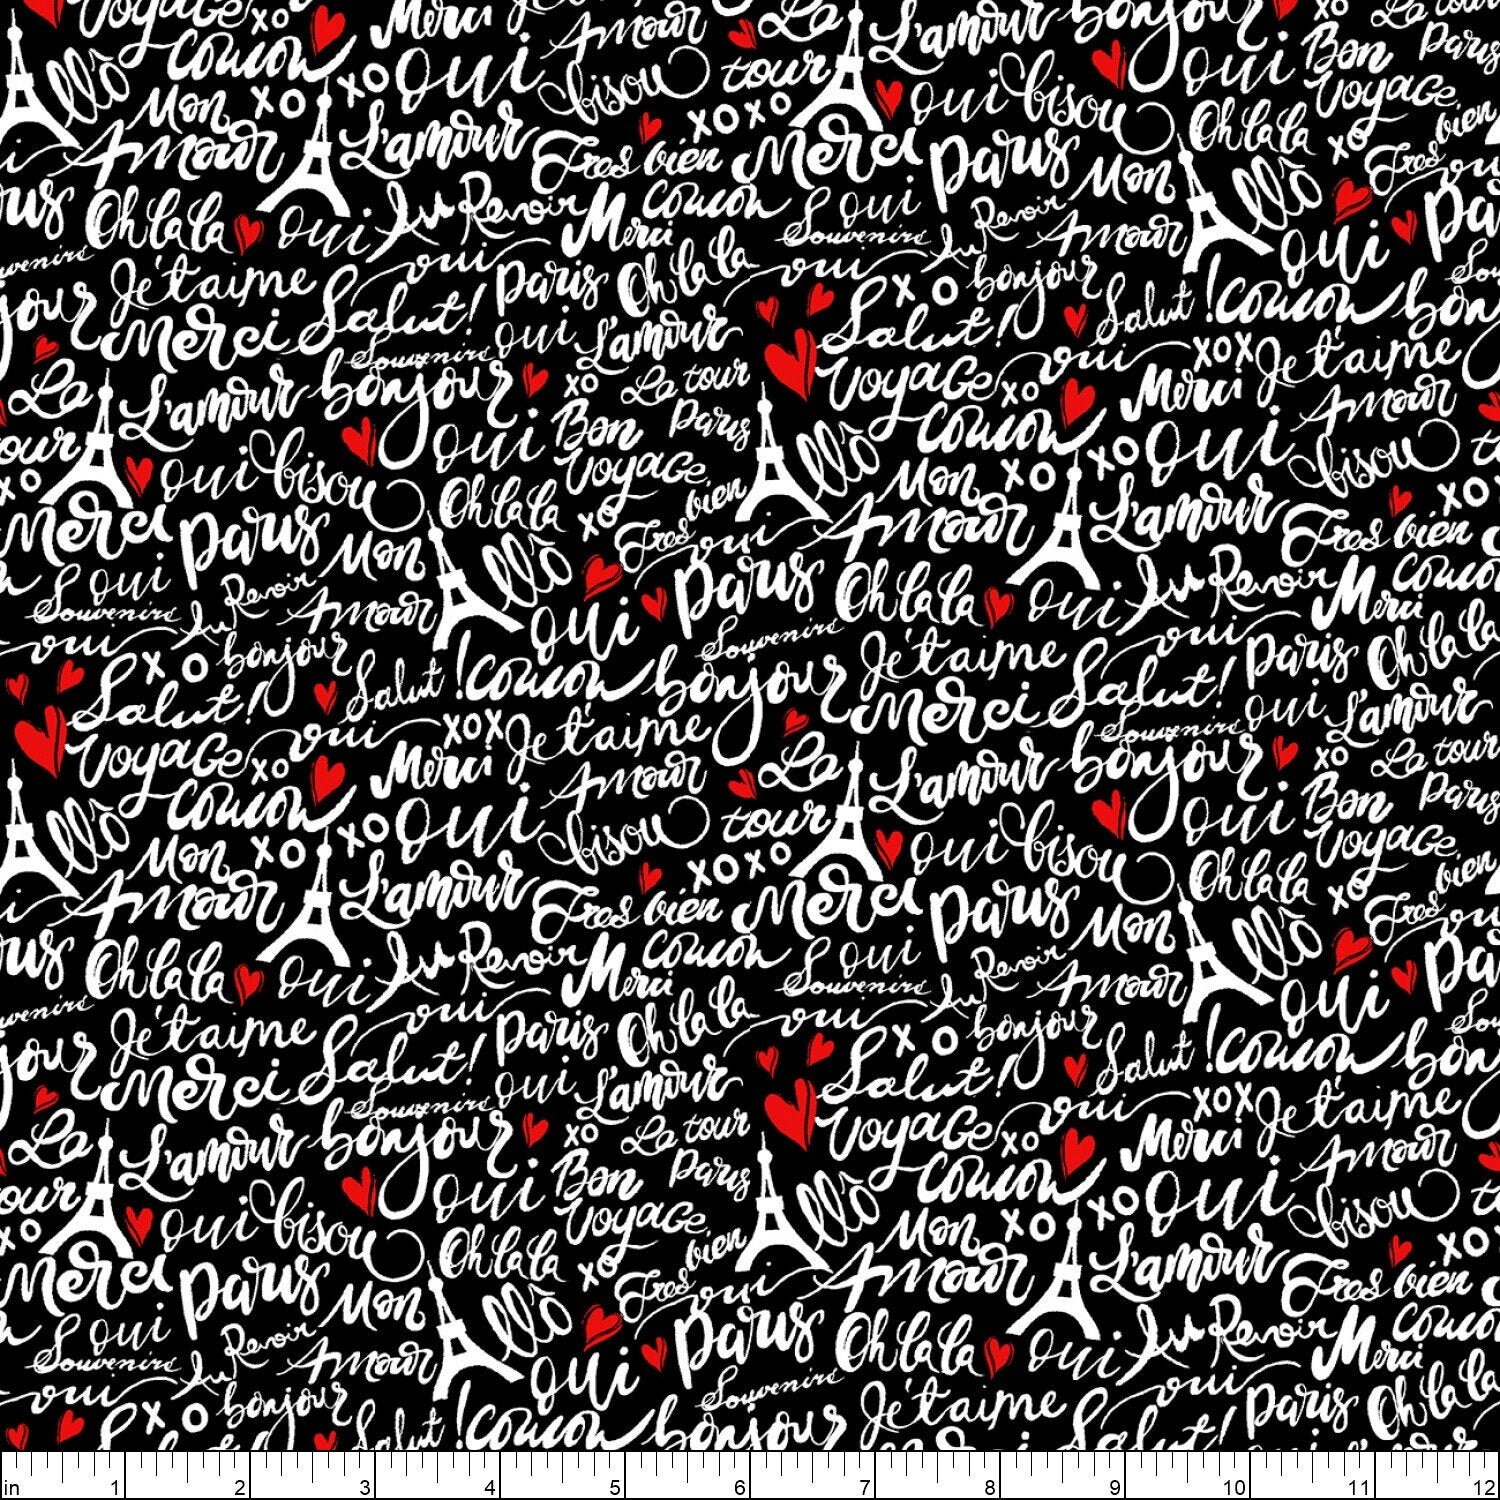 Voyage xo Merci Je t'aime La L'amour bonjour xo La tour
Coucou Amour Bon Paris
Allô xo oui bisou tour oui bisou oui Voyage
Mon xo L'amour xoxo Oh la la bien
Amour Tres bien Merci Paris Mon xo Tres
Oh la la oui Au Revoir Merci Coucou oui Souvenirs Au Revoir Amour Allô oui
Souvenirs Je t'aime Salut! oui Paris Oh la la oui xo bonjour Salut! Coucou bonjour
Merci Souvenirs oui L'amour Salut! oui xox Je t'aime
La L'amour bonjour xo La tour Voyage xo Merci Amour
tour oui Bon Paris Coucou xo oui bisou
xo oui bisou Voyage Allô Mon xo L'amour xo
Merci Paris Mon Oh la la xo bien Amour Tres bien
oui Au Revoir Allô Tres oui Paris Oh la la oui Au Revoir Coucou
Souvenirs Amour oui Souvenirs Je t'aime oui Merci
oui xo bonjour Salut! Coucou bonjour Merci Salut! Paris Oh la la
Salut! oui xox Je t'aime Souvenirs oui L'amour
Voyage xo Merci Amour La L'amour bonjour xo La tour
Coucou xo oui bisou tour oui Bon Paris
Allô Mon xo L'amour xoxo oui bisou Voyage
Amour Tres bien Merci Paris Mon Oh la la xo Tres bien
Oh la la oui Au Revoir Merci Coucou oui Souvenirs Au Revoir Amour Allô oui
Souvenirs Je t'aime Salut! oui Paris Oh la la oui xo bonjour Salut! Coucou
Merci Souvenirs oui L'amour Salut! oui xox Je t'aime
La L'amour bonjour xo La tour Voyage xo Merci Amour
tour oui Bon Paris Coucou xo oui bisou
xo oui bisou Voyage Allô Mon xo L'amour xo
Merci Paris Mon Oh la la xo Tres bien Amour Tres bien
oui Souvenirs Au Revoir Amour Allô oui Paris Oh la la oui Au Revoir Merci Coucou
oui xo bonjour Salut! Coucou Souvenirs bonjour Je t'aime oui Paris Oh la la
in 1 2 3 4 5 6 7 8 9 10 11 12